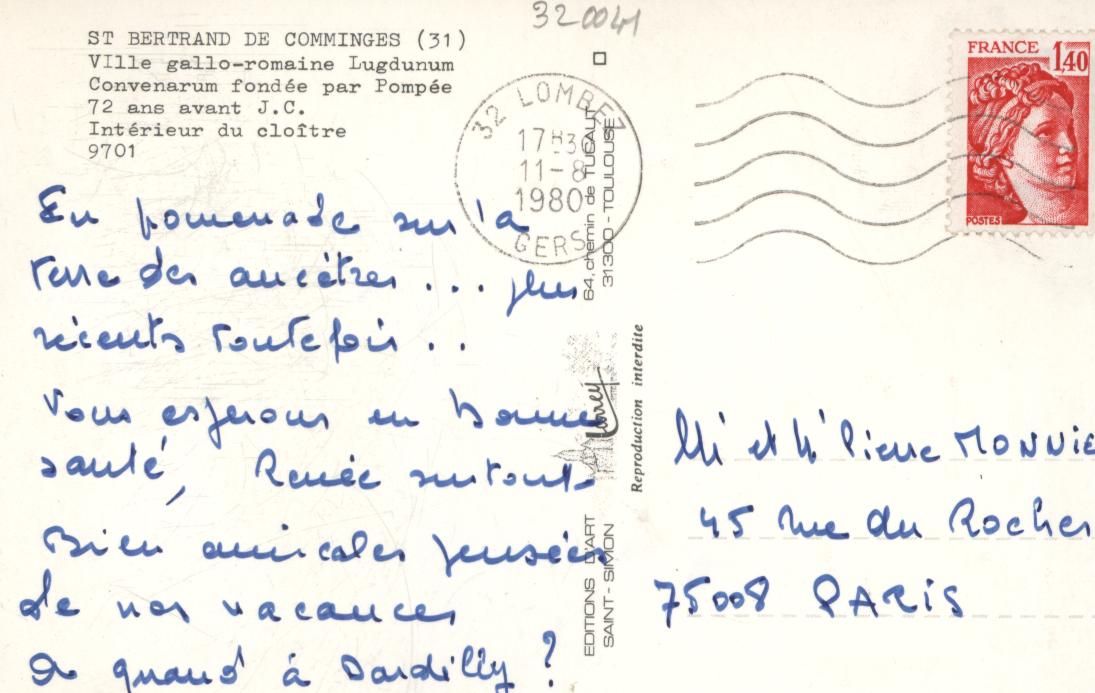 320041
ST BERTRAND DE COMMINGES (31)
VIlle gallo-romaine Lugdunum
Convenarum fondée par Pompée
72 ans avant J.C.
Intérieur du cloître
9701
32 LOMBEZ
17H30
11-8
1980
GERS
FRANCE 1,40
POSTES
En pomenade sur la
terre des ancêtres ... plus
récents toutefois ..
Vous esperons en bonne
santé, Renée surtout
Bien amicales pensées
de nos vacances
A quand à Dardilly ?
64, chemin de TUCAUT
31300 - TOULOUSE
Larrey
Reproduction interdite
EDITIONS D'ART
SAINT-SIMON
et Pierre MONNIE
45 rue du Rocher
75008 PARIS